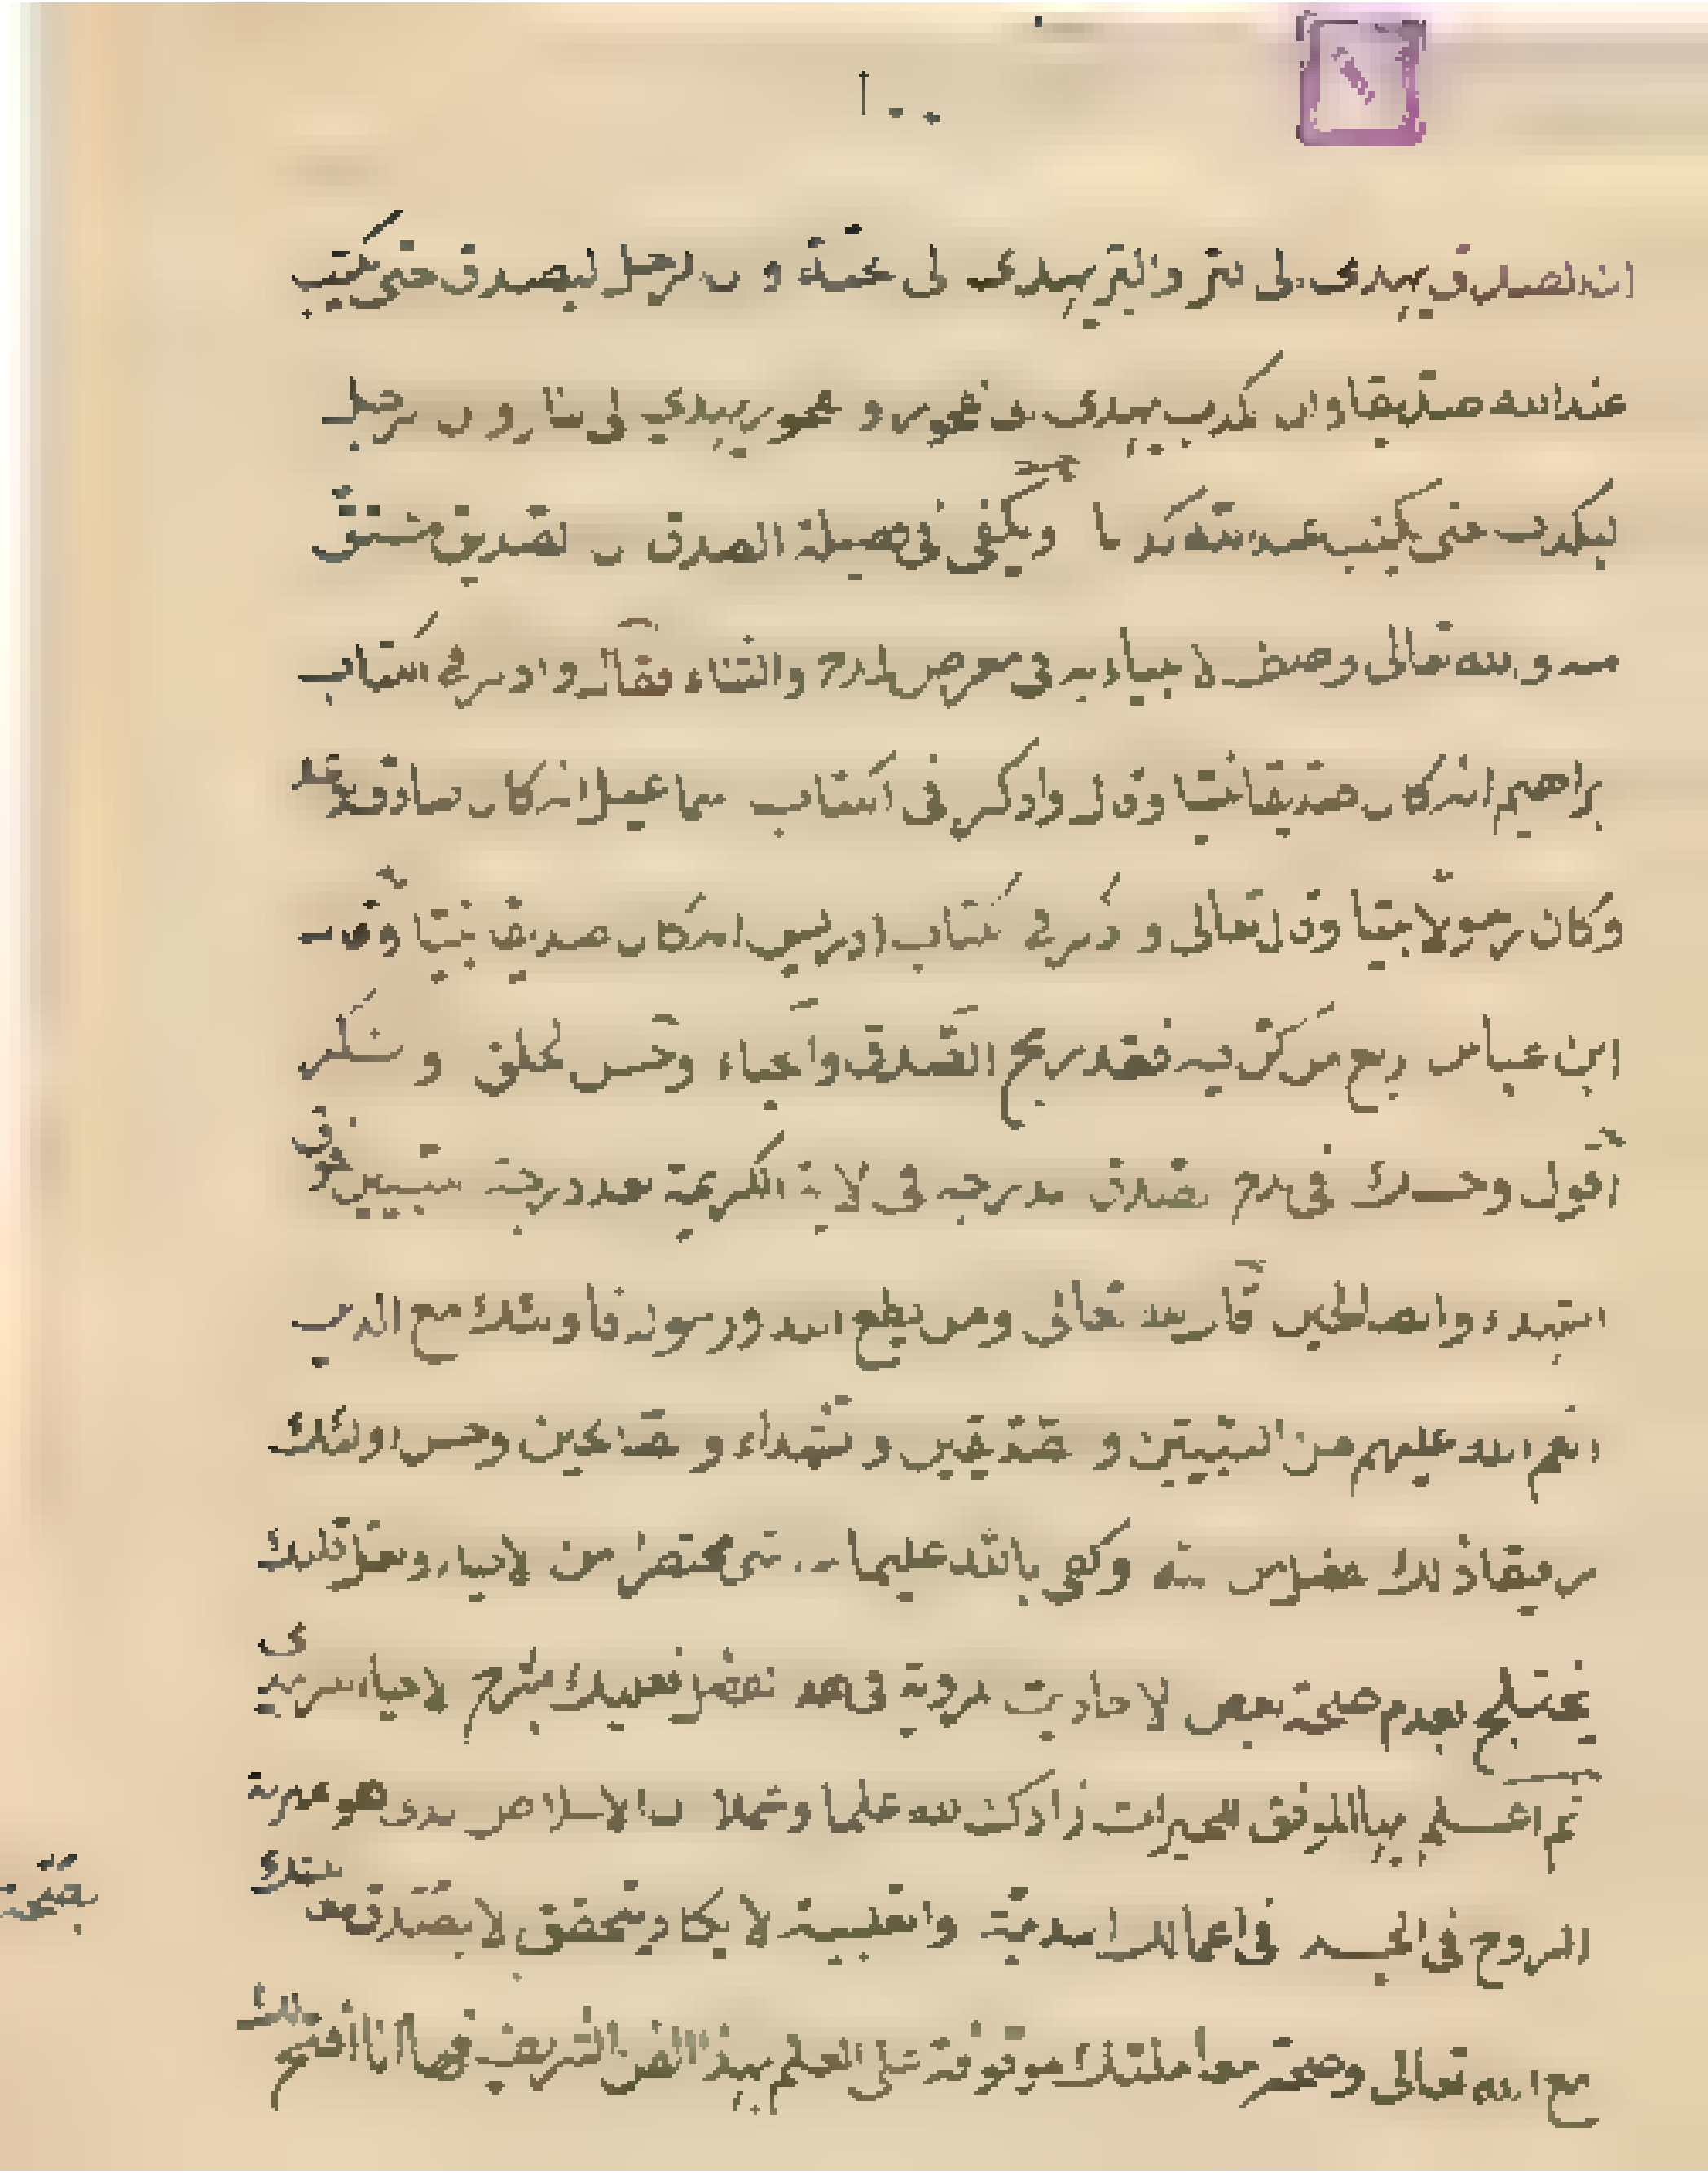 ١٠٠
ان الصدق يهدى الى البر والبر يهدى الى الجنة وان الرجل ليصدق حتى يكتب
عند الله صديقا وان الكذب يهدى الى الفجور والفجور يهدي الى النار وان الرجل
ليكذب حتى يكتب عند الله كذابا ويكفى فى فضيلة الصدق ان الصديق مشتق
منه والله تعالى وصف الانبياء به فى معرض المدح والثناء فقال واذكر فى الكتاب
ابراهيم انه كان صديقا نبيا وقال واذكر فى الكتاب اسماعيل انه كان صادق الوعد
وكان رسولا نبيا وقال تعالى واذكر فى الكتاب ادريس انه كان صديقا نبيا وقال
ابن عباس اربع من كن فيه فقد ربح الصدق والحياء وحسن الخلق والشكر
اقول وحسبك فى مدح الصدق درجه فى الاية الكريمة بعد درجة النبيين فوق
الشهداء والصالحين قال الله تعالى ومن يطع الله ورسوله فاولئك مع الذين
انعم الله عليهم من النبيين والصديقين والشهداء والصالحين وحسن اولئك
رفيقا ذلك الفضل من الله وكفى بالله عليما انتهى مختصرا من الاحياء ولعل قلبك
يختلج بعدم صحة بعض الاحاديث المروية فى هذا الفصل فعليك بشرح الاحياء للزبيدى
ثم اعلم ايها الموفق للخيرات زادك الله علما وعملا ان الاخلاص الذى هو بمنزلة
الروح فى الجسد فى اعمالك البدنية والقلبية لا يكاد يتحقق الا بصدق معاملتك
مع الله تعالى وصحة معاملتك موقوفة على العلم بهذا الفن الشريف فها انا افتح لك
بصحة